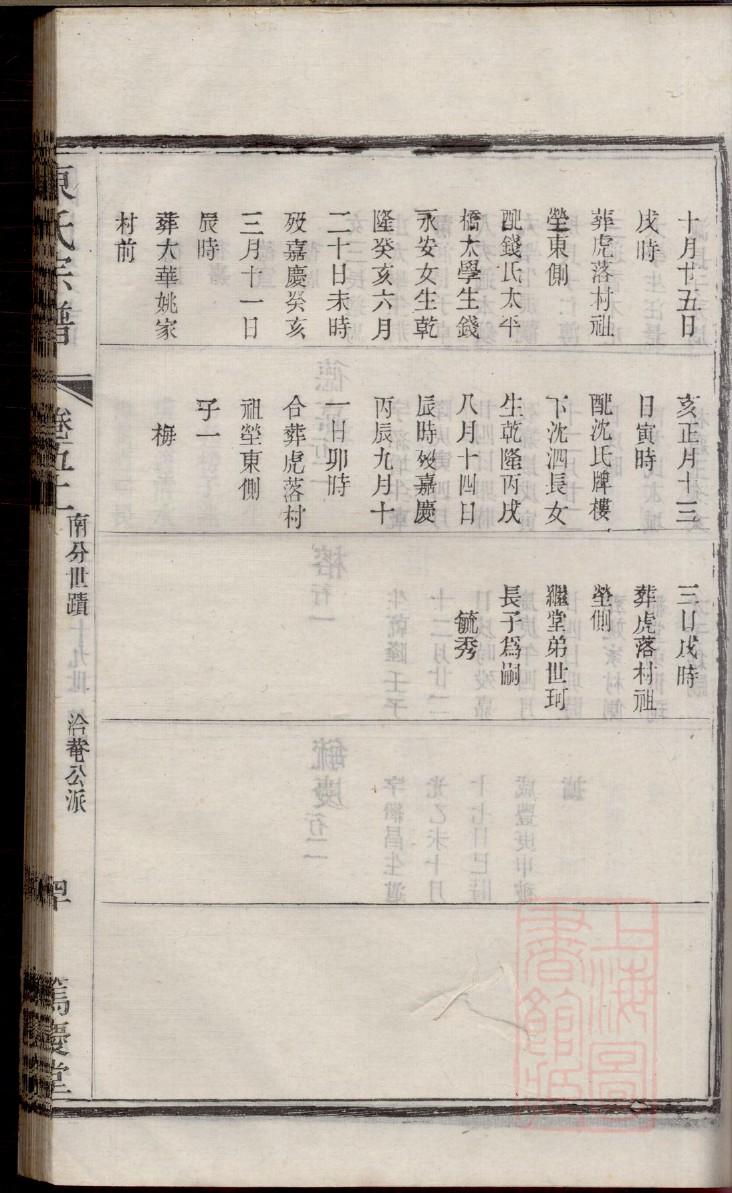 十月廿五日
戌時
葬虎落村祖
塋東側
配錢氏太平
橋太學生錢
永安女生乾
隆癸亥六月
二十日未時
歿嘉慶癸亥
三月十一日
辰時
葬大華姚家
村前
亥正月十三
日寅時
配沈氏牌樓
下沈泗長女
生乾隆丙戌
八月十四日
辰時歿嘉慶
丙辰九月十
一日卯時
合葬虎落村
祖塋東側
子一
梅
三日戌時
葬虎落村祖
塋側
繼堂弟世珂
長子爲嗣
毓秀
氏宗譜
卷五十
南分世蹟
十九世
洽菴公派
篤慶堂
上海圖書館藏